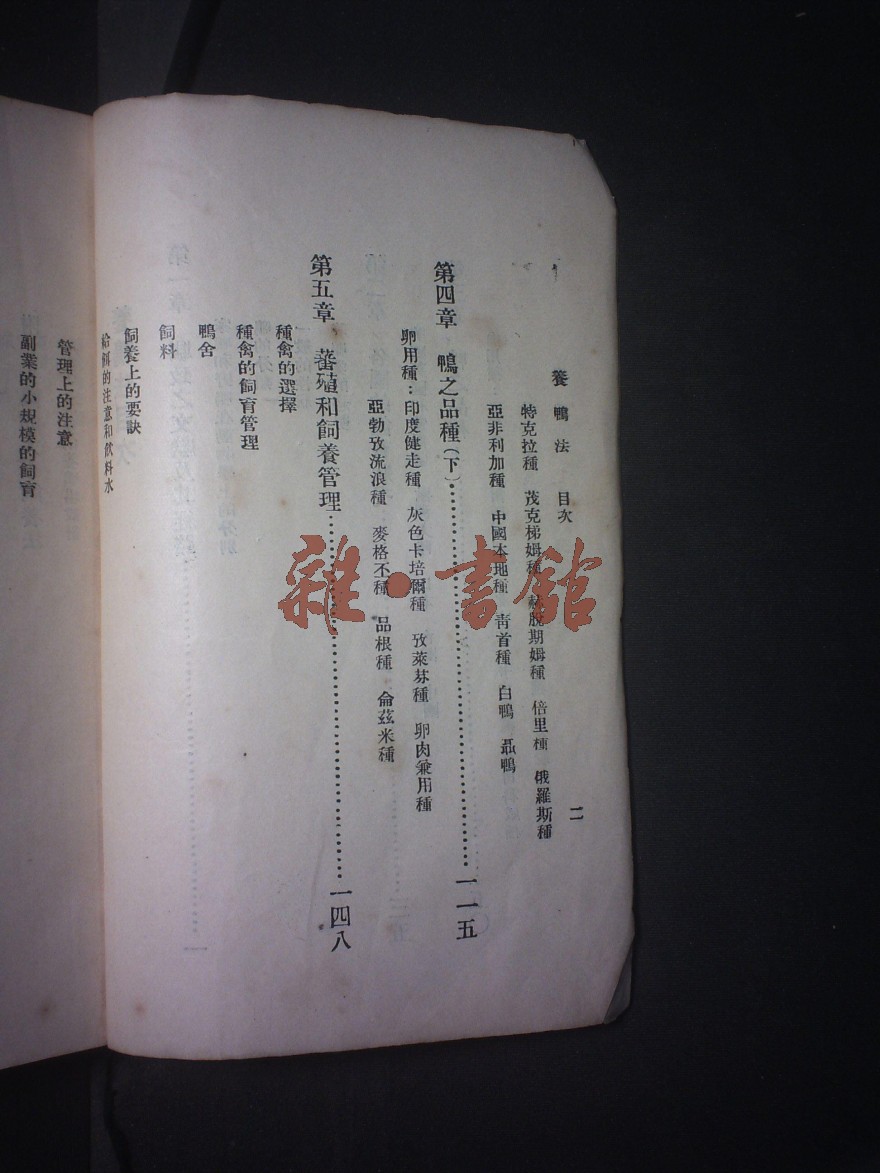 養鴨法 目次 二
特克拉種 茂克梯姆種 脫期姆種 倍里種 俄羅斯種
亞非利加種 中國本地種 靑首種 白鴨 聶鴨
第四章 鴨之品種(下)……………………一一五
卵用種：印度健走種 灰色卡培爾種 攷萊芬種 卵肉兼用種
亞勃攷流浪種 麥格不種 品根種 侖茲米種
第五章 蕃殖和飼養管理……………………一四八
種禽的選擇
種禽的飼育管理
鴨舍
飼料
飼養上的要訣
給餌的注意和飲料水
管理上的注意
副業的小規模的飼育
雜·書館